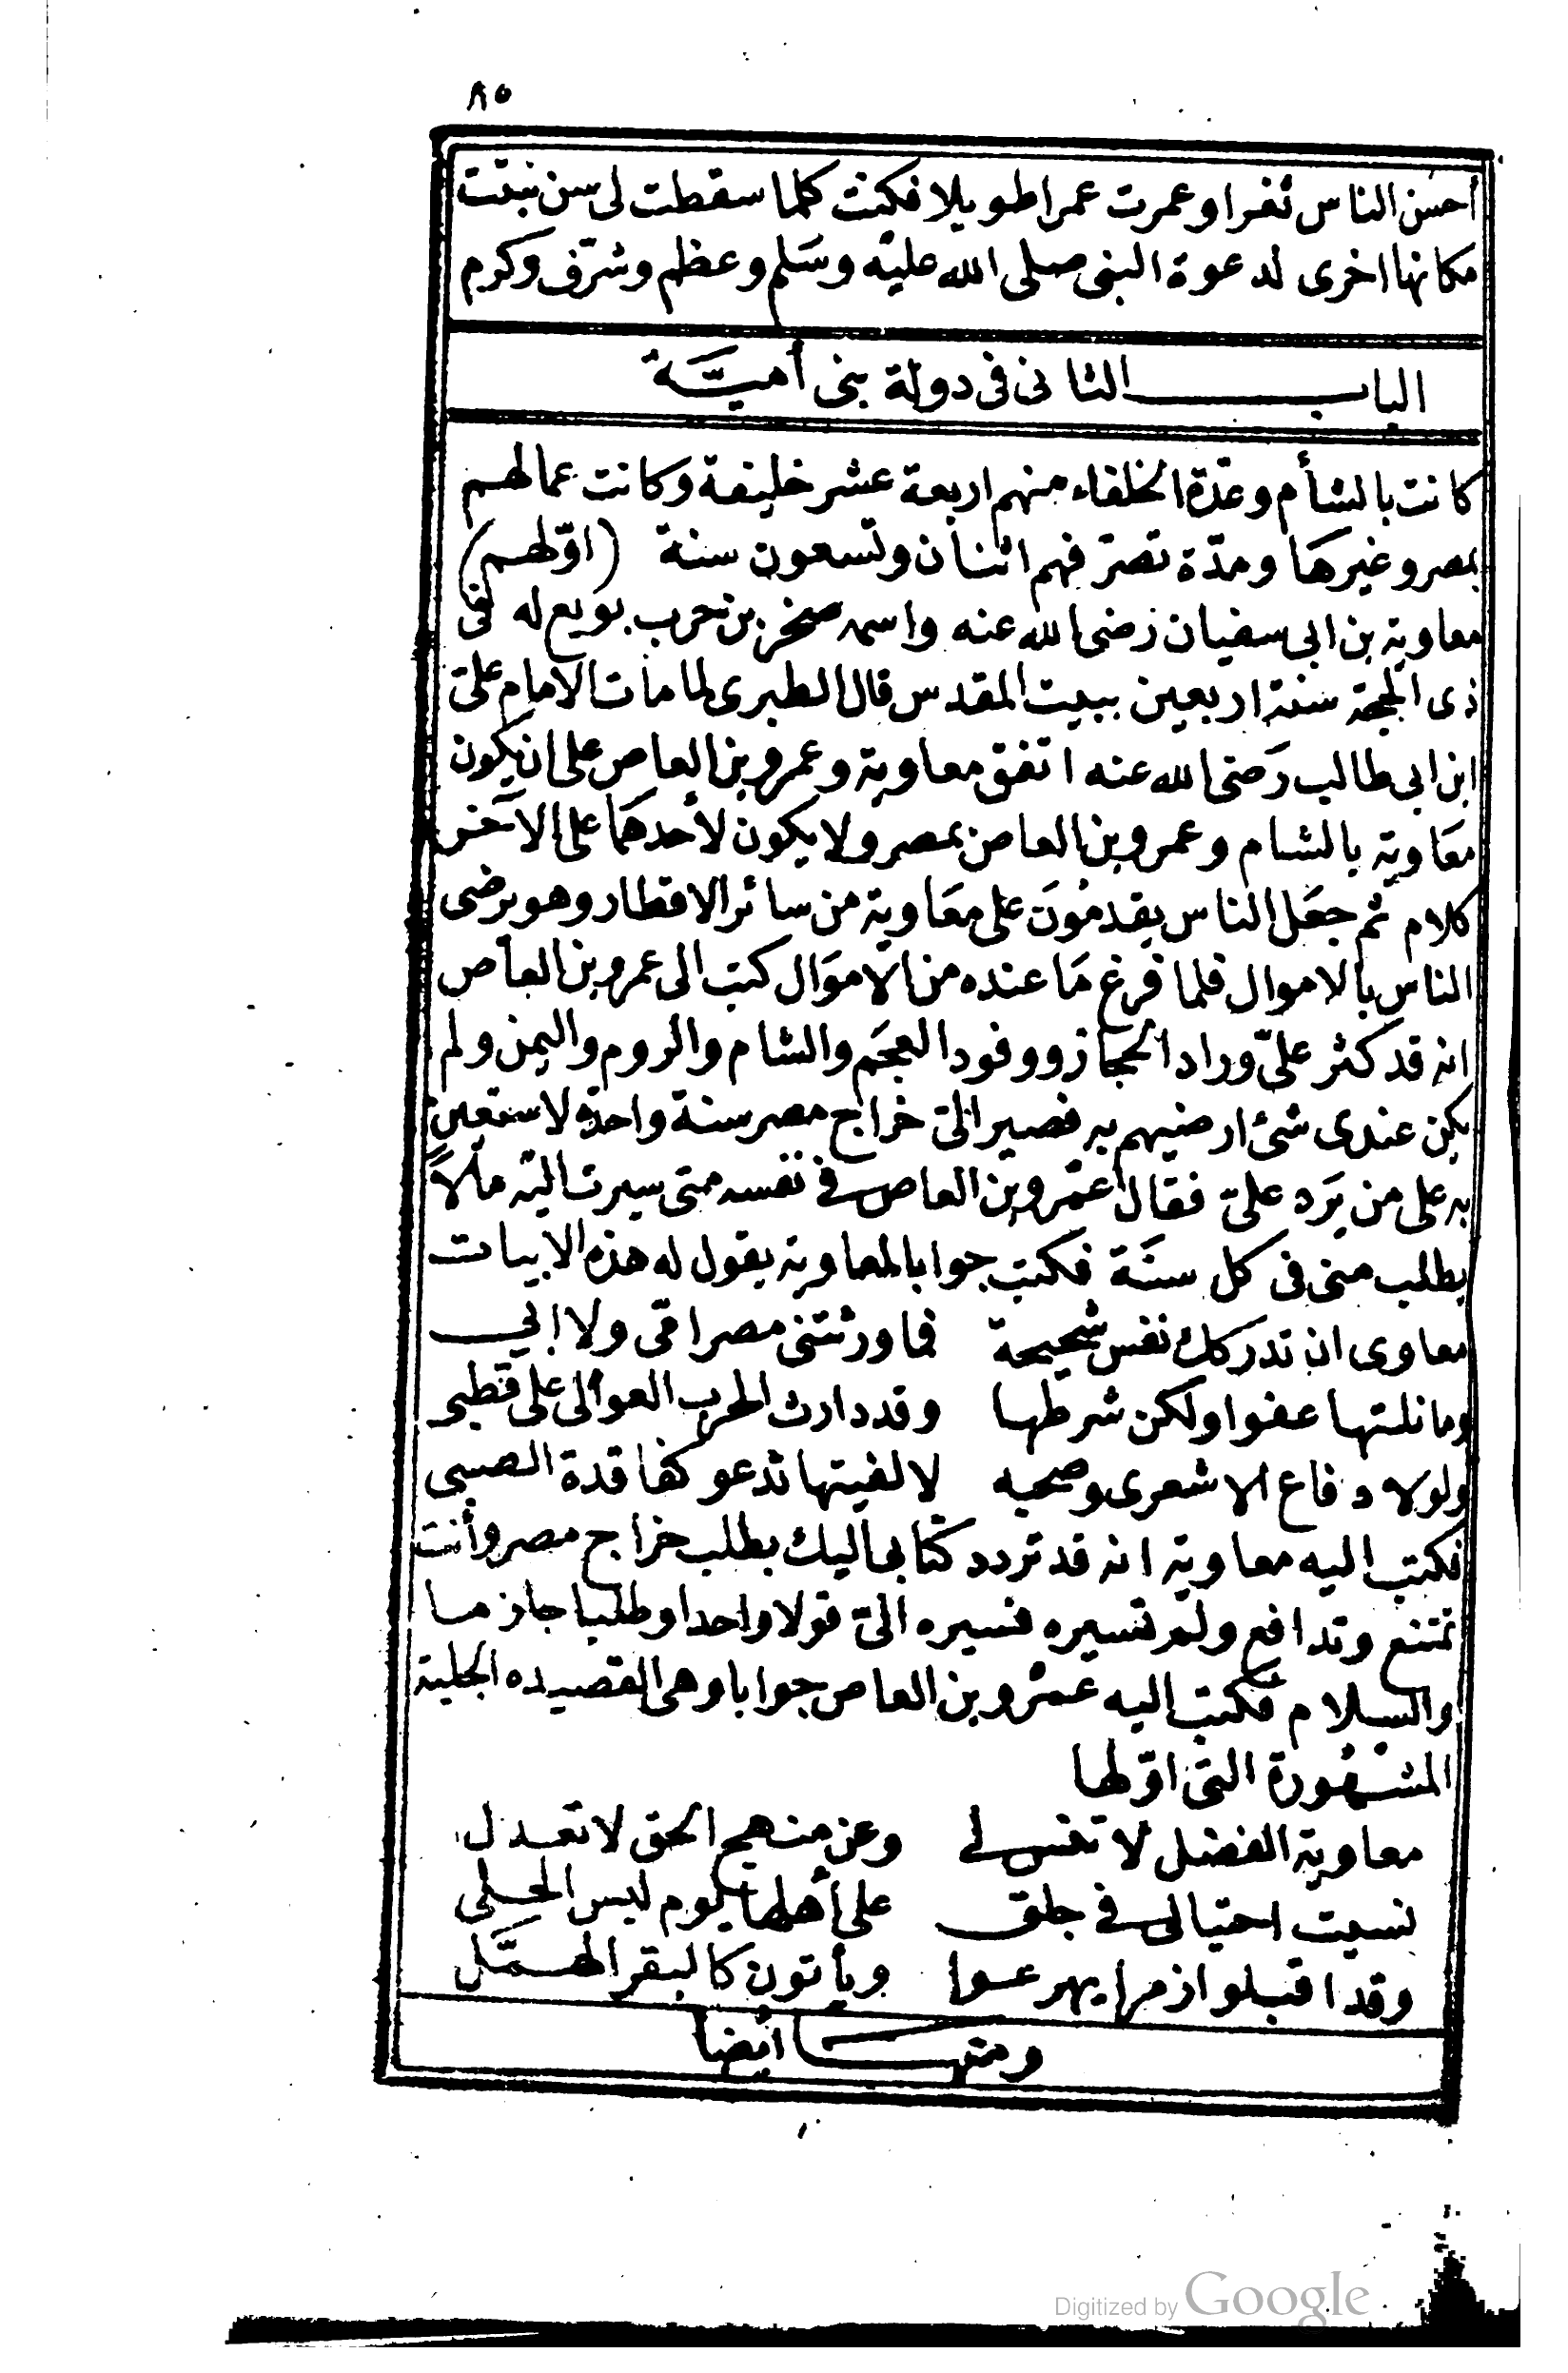 ٨٥
أحسن الناس ثغرا وعمرت عمرا طويلا فكنت كلما سقطت لى سن نبتت
مكانها اخرى لدعوة النبى صلى الله عليه وسلم وعظم وشرّف وكرم
البــاب الثانى فى دولة بنى أميّة
كانت بالشأم وعدّة الخلفاء منهم اربعة عشر خليفة وكانت عمالهم
بمصر وغيرها ومدّة تصرّفهم اثنان وتسعون سنة (اوّلهم)
معاوية بن ابى سفيان رضى الله عنه واسمه صخر بن حرب بويع له فى
ذى الحجة سنة اربعين ببيت المقدس قال الطبرى لما مات الامام علىّ
ابن ابى طالب رضى الله عنه اتفق معاوية وعمرو بن العاص على ان يكون
معاوية بالشام وعمرو بن العاص بمصر ولا يكون لأحدهما على الآخر
كلام ثم جعل الناس يقدمون على معاوية من سائر الاقطار وهو يرضى
الناس بالاموال فلما فرغ ما عنده من الاموال كتب الى عمرو بن العاص
انه قد كثر علىّ وراد الحجاز ووفود العجم والشام والروم واليمن ولم
يكن عندى شئ ارضيهم به فصير الىّ خراج مصر سنة واحدة لاستعين
به على من يرد علىّ فقال عمرو بن العاص فى نفسه متى سيرت اليه مالاً
يطلب منى فى كل سنة فكتب جوابا لمعاوية يقول له هذه الابيات
معاوى ان تدركك نفس شحيحة فما ورثتنى مصر امّى ولا ابى
وما نلتها عفوا ولكن شرطها وقد دارت الحرب العوالى على قطبى
ولولا دفاع الاشعرى وصحبه لالفيتها تدعو كفاقدة الصبى
فكتب اليه معاوية انه قد تردد كتابى اليك بطلب خراج مصر وأنت
تمتنع وتدافع ولم تسيره فسيره الىّ قولا واحدا وطلبا جازما
والسلام فكتب اليه عمرو بن العاص جوابا وهى القصيده الجلية
المشهورة التى اوّلها
معاوية الفضل لا تنس لى وعن منهج الحق لا تعدل
نسيت احتيالى فى جلق على أهلها يوم لبس الحلى
وقد اقبلوا زمرا يهرعوا ويأتون كالبقر الهمّل
ومنهــا أيضا
Digitized by Google